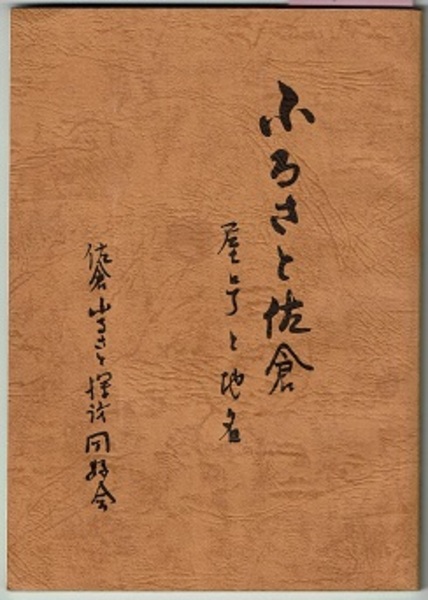 ふるさと佐倉
屋号と地名
佐倉ふるさと探訪同好会